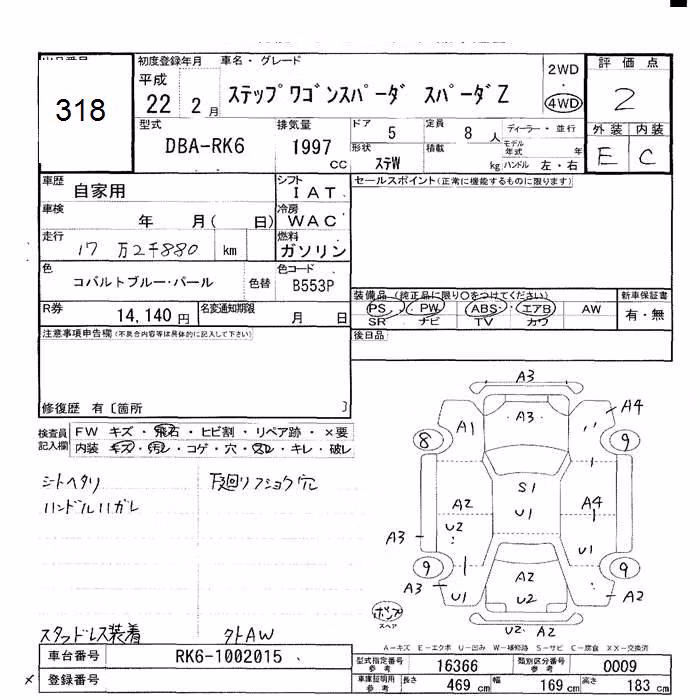 初度登録年月 車名・グレード
平成
22 2 月 ステップワゴンスパーダ スパーダZ
2WD
4WD
評価点
2
318
型式 排気量 ドア 定員 ディーラー・並行
DBA-RK6 1997 CC 5 8 人 モデル年式 年
形状 積載
ステW kg ハンドル 左・右
外装 内装
E C
車歴 自家用 シフト IAT セールスポイント(正常に機能するものに限ります)
車検 年 月( 日) 冷房 WAC
走行 17 万2千880 km 燃料 ガソリン
色 コバルトブルー・パール 色替 色コード B553P
装備品 (純正品に限り〇をつけてください) 新車保証書
PS PW ABS エアB AW 有・無
SR ナビ TV カワ
R券 14,140 円 名変通知期限 月 日
後日品
注意事項申告欄(不具合内容等は具体的に記入して下さい)
修復歴 有〔箇所 〕
検査員記入欄 FW キズ・飛石・ヒビ割・リペア跡・×要
内装 キズ・汚レ・コゲ・穴・スレ・キレ・破レ
シートヘタリ 下廻りフショク穴
ハンドルハガレ
A3
A3
A4
A1
8
9
S1
A2
U1
A4
U2
A3
U1
9
9
A3
U1
A2
U2
A2
U2 A2
ボンプ
スペア
スタッドレス装着 タトAW
A-キズ E-エクボ U-凹み W-補修跡 S-サビ C-腐食 XX-交換済
車台番号 RK6-1002015
型式指定番号 参考 16366 類別区分番号 参考 0009
× 登録番号
車庫証明用 参考 長さ 469 cm 幅 169 cm 高さ 183 cm